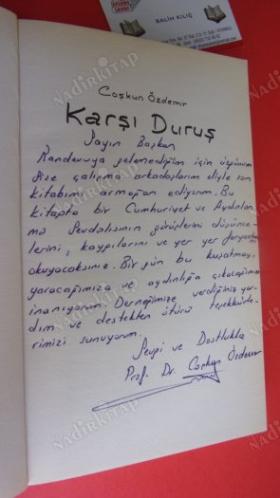 SALİH KILIÇ
Coşkun Özdemir
Karşı Duruş
Sayın Başkan
Randevuya gelemediğim için üzgünüm
Size çalışma arkadaşlarım eliyle son
kitabımı armağan ediyorum. Bu
kitapta bir Cumhuriyet ve Aydınlan
ma Sevdalısının görüşlerini düşünce-
lerini, kaygılarını ve yer yer
okuyacaksınız. Bir gün bu kuşatmayı
yaracağımıza ve aydınlığa çıkacağımıza
inanıyorum. Derneğimize verdiğiniz yar-
dım ve destekten ötürü teşekkürle-
rimizi sunuyorum.
Sevgi ve Dostlukla
Prof. Dr. Coşkun Özdemir
NADİRKİTAP